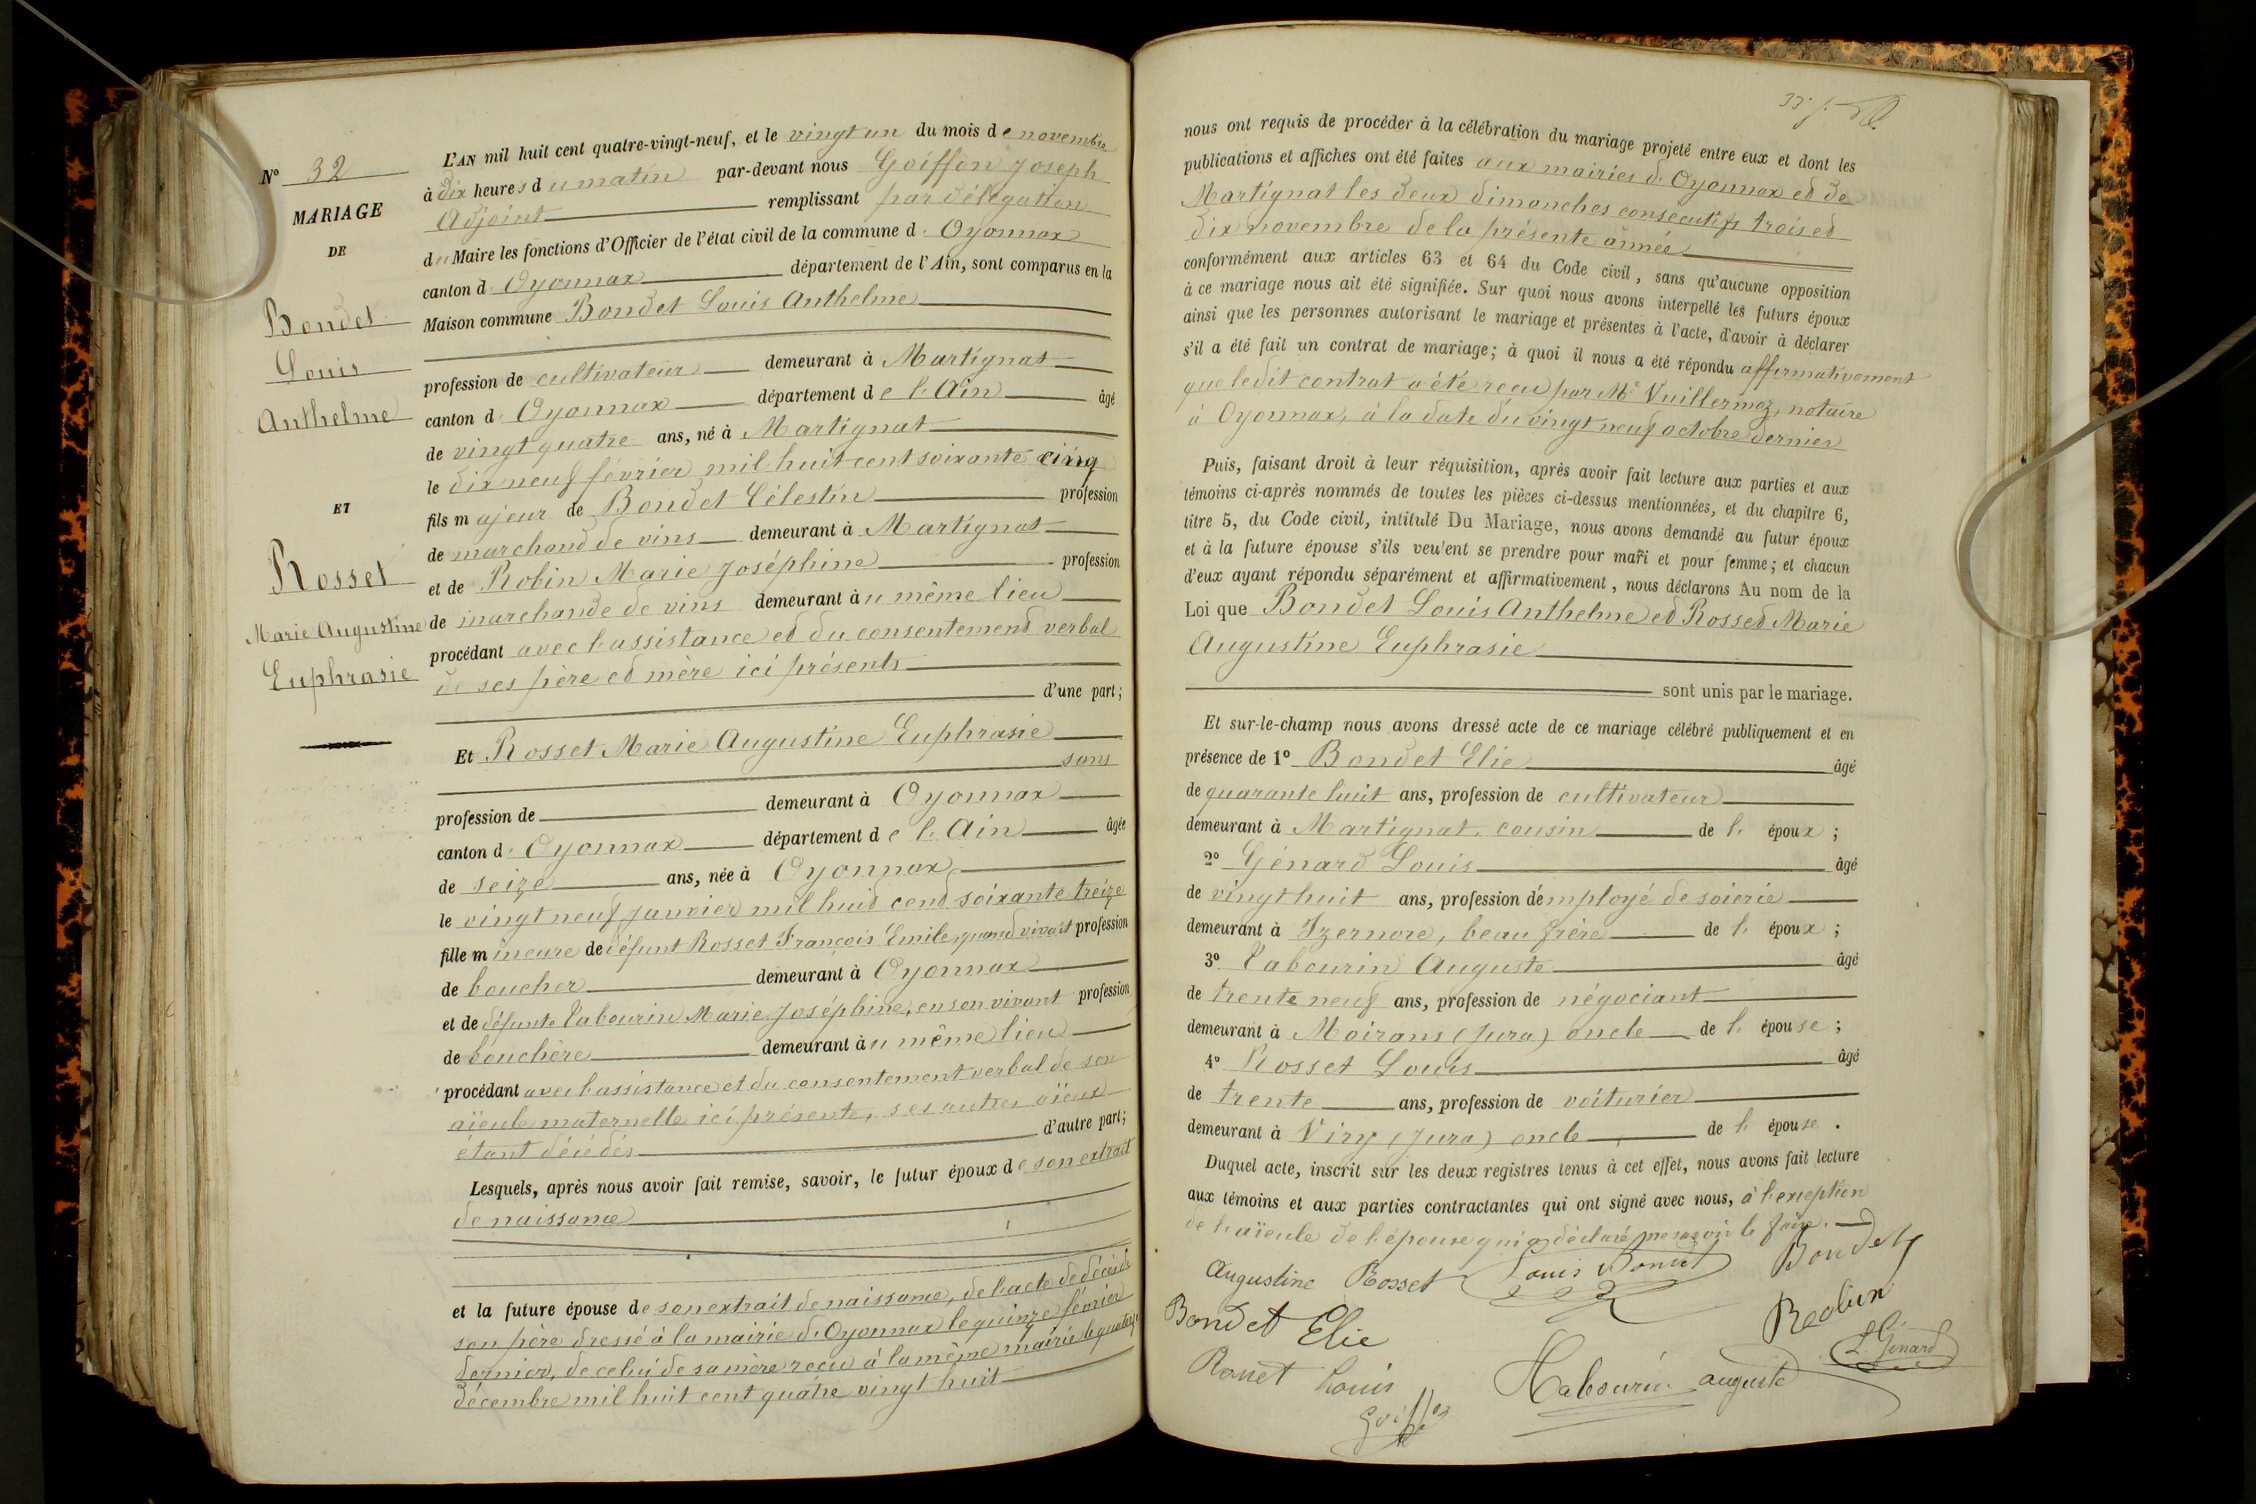 N° 32
MARIAGE
DE
Bondet
Louis
Anthelme
ET
Rosset
Marie Augustine
Euphrasie
L'AN mil huit cent quatre-vingt-neuf, et le vingt un du mois de novembre
à dix heures du matin par-devant nous Goiffon Joseph
Adjoint remplissant par délégation
du Maire les fonctions d'Officier de l'état civil de la commune d' Oyonnax
canton d' Oyonnax département de l'Ain, sont comparus en la
Maison commune Bondet Louis Anthelme
profession de cultivateur demeurant à Martignat
canton d' Oyonnax département de l'Ain âgé
de vingt quatre ans, né à Martignat
le dix neuf février mil huit cent soixante cinq
fils majeur de Bondet Célestin profession
de marchand de vins demeurant à Martignat
et de Robin Marie Joséphine profession
de marchande de vins demeurant au même lieu
procédant avec l'assistance et du consentement verbal
de ses père et mère ici présents
d'une part;
Et Rosset Marie Augustine Euphrasie
sans
profession de demeurant à Oyonnax
canton d' Oyonnax département de l'Ain âgée
de seize ans, née à Oyonnax
le vingt neuf janvier mil huit cent soixante treize
fille mineure de défunt Rosset François Emile, quand vivait profession
de boucher demeurant à Oyonnax
et de défunte Tabourin Marie Joséphine, en son vivant profession
de bouchère demeurant au même lieu
procédant avec l'assistance et du consentement verbal de son
aïeule maternelle ici présente, ses autres aïeux
étant décédés d'autre part;
Lesquels, après nous avoir fait remise, savoir, le futur époux de son extrait
de naissance
et la future épouse de son extrait de naissance, de l'acte de décès de
son père dressé à la mairie d'Oyonnax le quinze février
dernier, de celui de sa mère reçu à la même mairie le quatorze
décembre mil huit cent quatre vingt huit
nous ont requis de procéder à la célébration du mariage projeté entre eux et dont les
publications et affiches ont été faites aux mairies d'Oyonnax et de
Martignat les deux dimanches consécutifs trois et
dix novembre de la présente année
conformément aux articles 63 et 64 du Code civil, sans qu'aucune opposition
à ce mariage nous ait été signifiée. Sur quoi nous avons interpellé les futurs époux
ainsi que les personnes autorisant le mariage et présentes à l'acte, d'avoir à déclarer
s'il a été fait un contrat de mariage; à quoi il nous a été répondu affirmativement
que ledit contrat a été reçu par Me Vuillermoz, notaire
à Oyonnax, à la date du vingt neuf octobre dernier
Puis, faisant droit à leur réquisition, après avoir fait lecture aux parties et aux
témoins ci-après nommés de toutes les pièces ci-dessus mentionnées, et du chapitre 6,
titre 5, du Code civil, intitulé Du Mariage, nous avons demandé au futur époux
et à la future épouse s'ils veulent se prendre pour mari et pour femme; et chacun
d'eux ayant répondu séparément et affirmativement, nous déclarons Au nom de la
Loi que Bondet Louis Anthelme et Rosset Marie
Augustine Euphrasie
sont unis par le mariage.
Et sur-le-champ nous avons dressé acte de ce mariage célébré publiquement et en
présence de 1° Bondet Elie âgé
de quarante huit ans, profession de cultivateur
demeurant à Martignat, cousin de l' époux ;
2° Génard Louis âgé
de vingt huit ans, profession d'employé de soierie
demeurant à Izernore, beau frère de l' époux ;
3° Tabourin Auguste âgé
de trente neuf ans, profession de négociant
demeurant à Moirans (Jura) oncle de l' épouse ;
4° Rosset Louis âgé
de trente ans, profession de voiturier
demeurant à Viry (Jura) oncle de l' épouse .
Duquel acte, inscrit sur les deux registres tenus à cet effet, nous avons fait lecture
aux témoins et aux parties contractantes qui ont signé avec nous, à l'exception
de l'aïeule de l'épouse qui a déclaré ne savoir le faire.
Augustine Rosset Louis Bondet Bondet
Bondet Elie Reobin
L. Génard
Rosset Louis Tabourin auguste
Goiffon